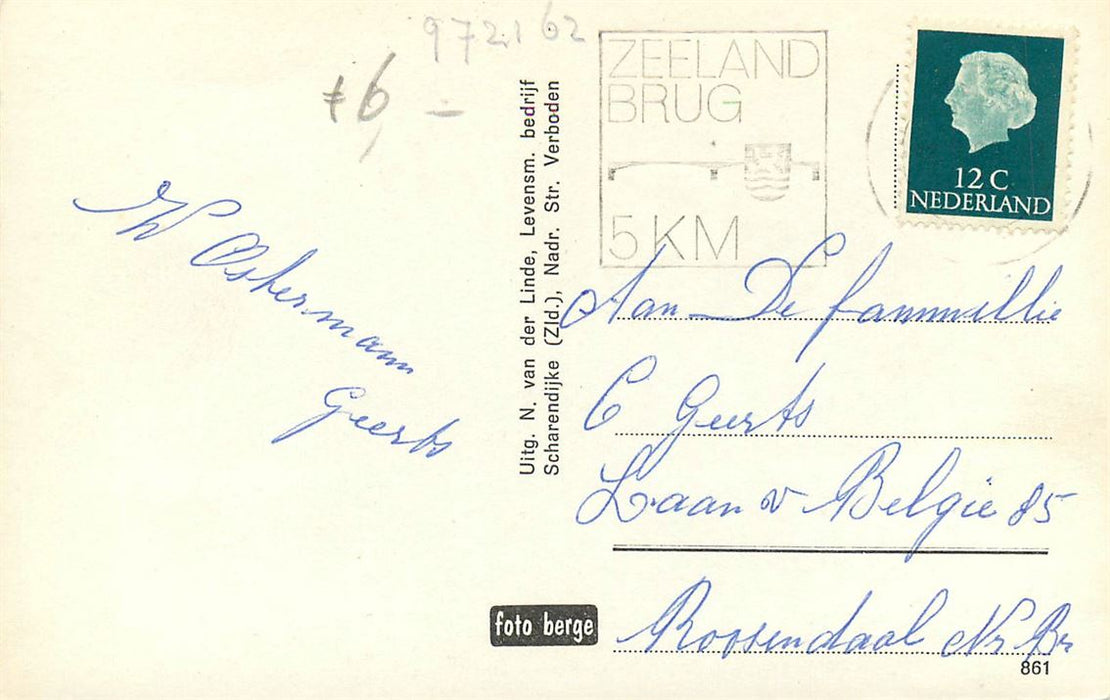 972162
≠6,–
ZEELAND
BRUG
5 KM
12 C
NEDERLAND
W Oskermann
Geerts
Uitg. N. van der Linde, Levensm. bedrijf
Scharendijke (Zld.), Nadr. Str. Verboden
Aan De fammillie
C Geerts
Laan v Belgie 85
Roosendaal Nr Br
foto berge
861